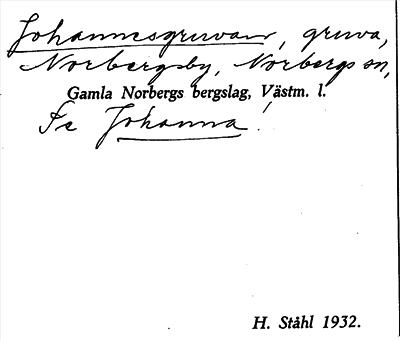 Johannesgruvan, gruva,
Norbergsby, Norbergs sn,
Gamla Norbergs bergslag, Västm. l.
Se Johanna!
H. Ståhl 1932.